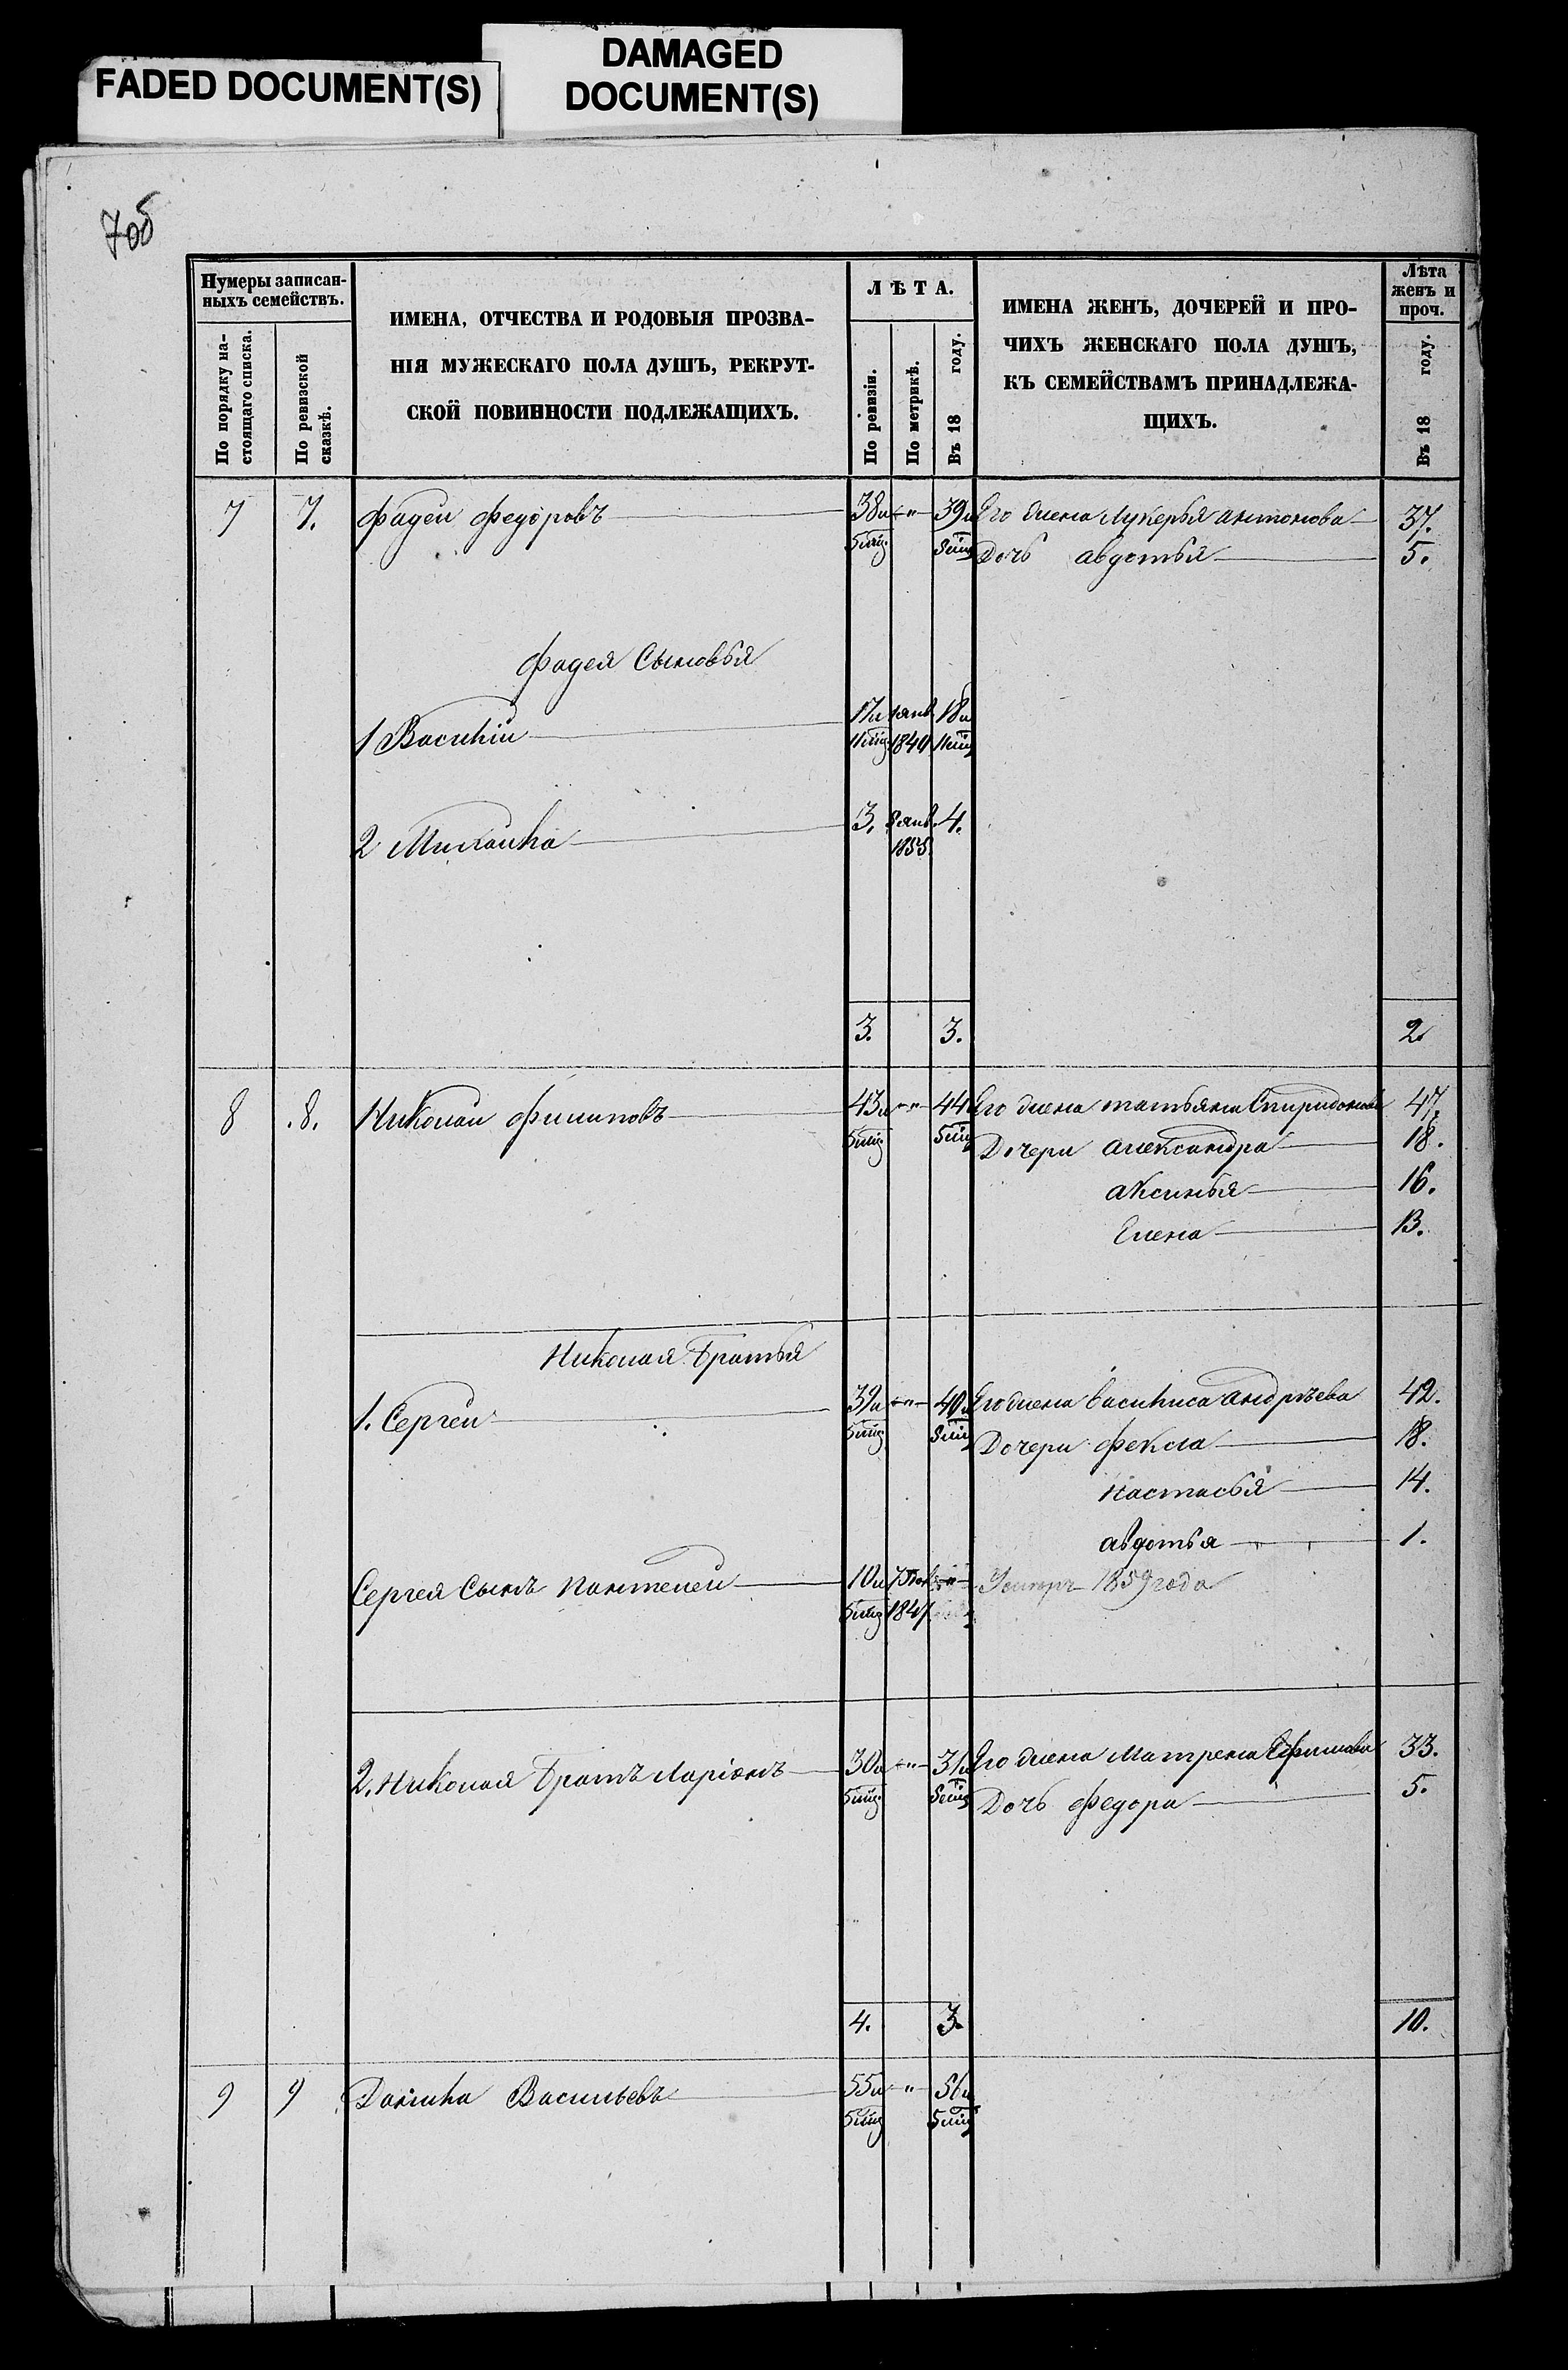 FADED DOCUMENT(S)
DAMAGED
DOCUMENT(S)
70б
Нумеры записан-
ныхъ семействъ.
По порядку на-
стоящаго списка.
По ревизской
сказкѣ.
ИМЕНА, ОТЧЕСТВА И РОДОВЫЯ ПРОЗВА-
НІЯ МУЖЕСКАГО ПОЛА ДУШЪ, РЕКРУТ-
СКОЙ ПОВИННОСТИ ПОДЛЕЖАЩИХЪ.
ЛѢТА.
По ревизіи.
По метрикѣ.
Въ 18 году.
ИМЕНА ЖЕНЪ, ДОЧЕРЕЙ И ПРО-
ЧИХЪ ЖЕНСКАГО ПОЛА ДУШЪ,
КЪ СЕМЕЙСТВАМЪ ПРИНАДЛЕЖА-
ЩИХЪ.
Лѣта
женъ и
проч.
Въ 18 году.
7 7. Фадей Федоровъ 38и " 39и Его жена Лукерья Антонова 37.
5мц. 5мц Дочь авдотья 5.
Фадея Сыновья
1 Василій 17и 1янв. 18и
11мц. 1840 11мц
2 Михайла 3. 8янв. 4.
1855.
3. 3. 2.
8 .8. Николай Филиповъ 43и " 44 Его жена татьяна Спиридонова 47.
5мц 5мц Дочери александра 18.
аксинья 16.
Елена 13.
Николая Братья
1. Сергей 39и " 40и Его жена василиса андрѣева 42.
5мц. 5мц Дочери фекла 18.
настасья 14.
авдотья 1.
Сергея Сынъ Пантелей 10и " Умеръ 1859 года
5мц 1847.
2. Николая Братъ Ларіонъ 30и " 31и Его жена Матрена Ефимова 33.
5мц. 5мц Дочь федора 5.
4. 3. 10.
9 9 Данила Васильевъ 55и " 56и
5мц 5мц